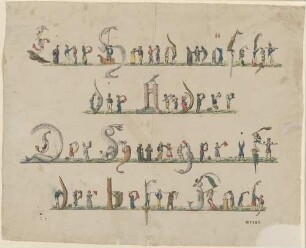 Eine Hand wäscht
die Andere
Der Hunger ist
der beste Koch